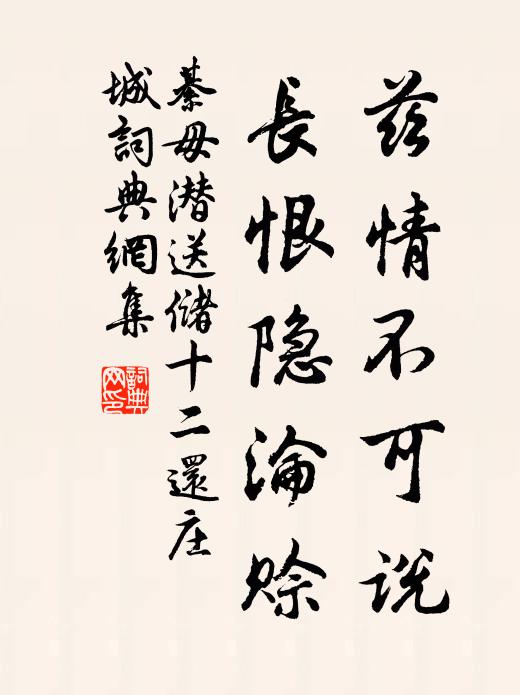 兹情不可说
長恨隐淪賒
綦毋潜送儲十二還庄
城詞典網集
詞典
网印